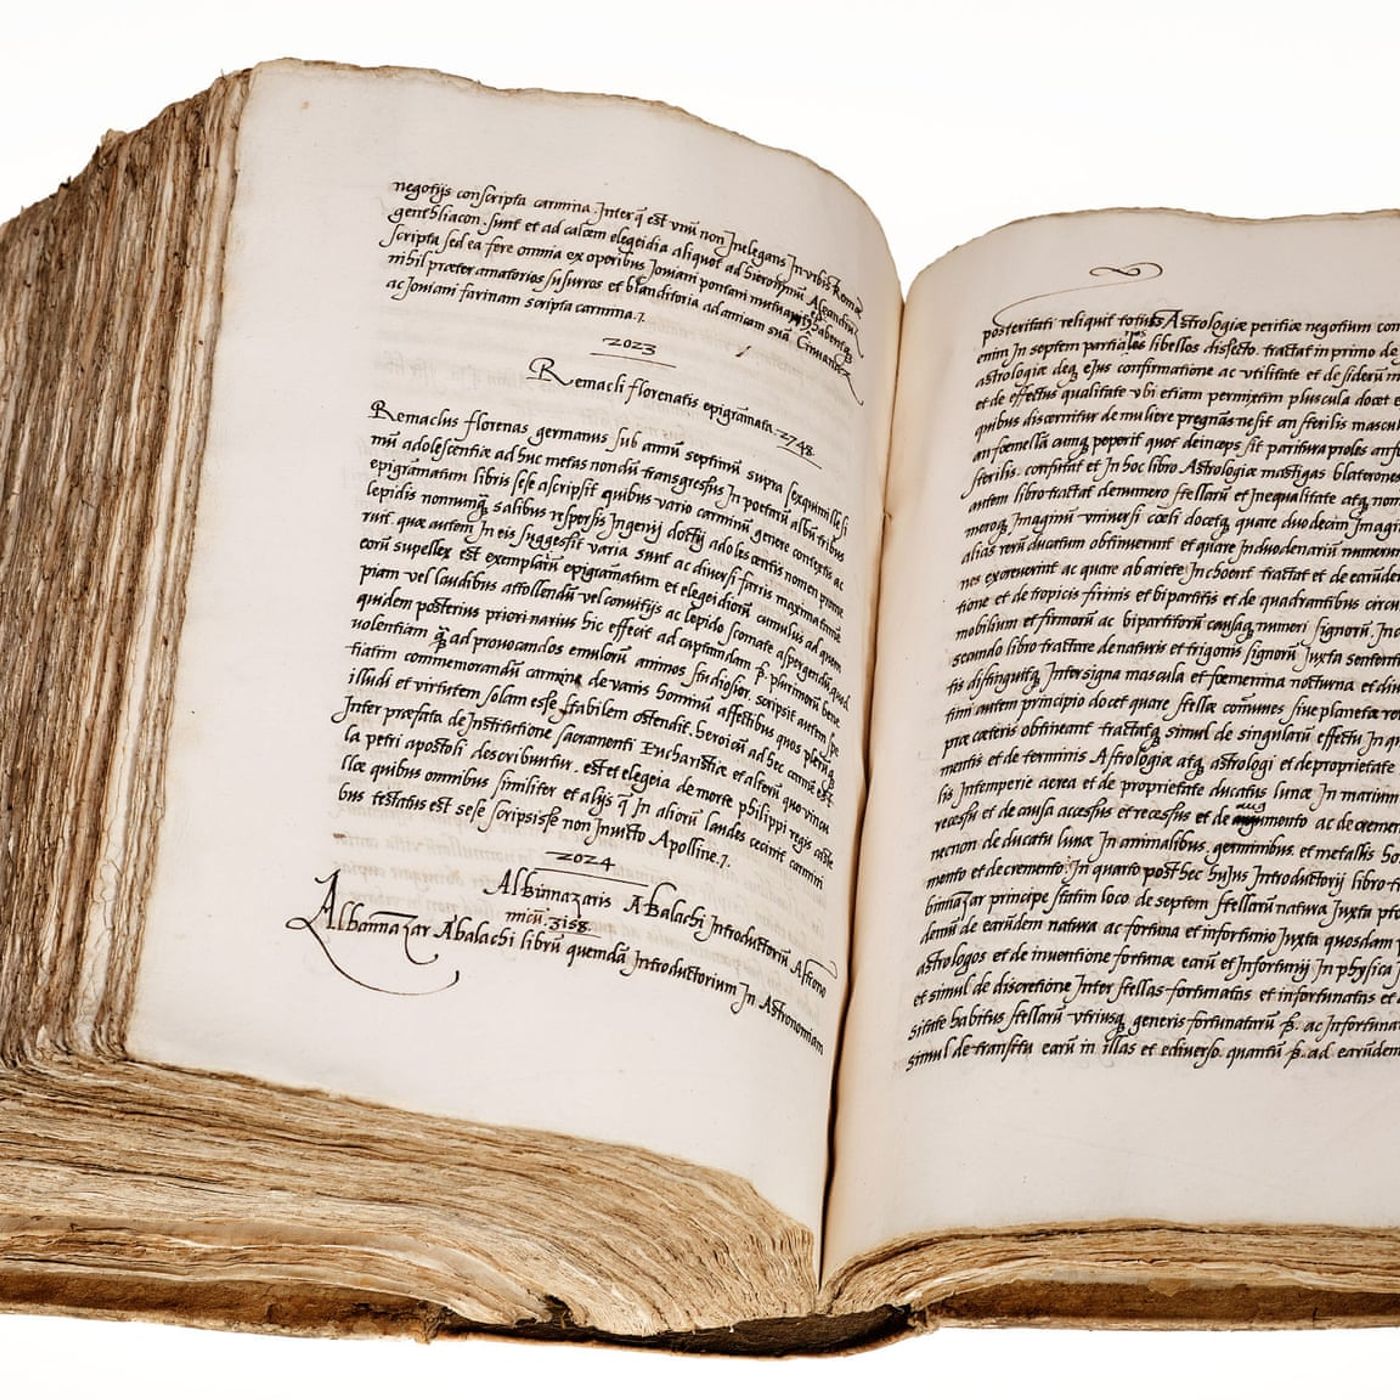 negotijs conscripta carmina. Inter q̄ est vnū non Inelegans In vrbis Romæ
genethliacon. sunt et ad calcem elegeidia aliquot ad hieronymū Alexandrū
scripta sed ea fere omnia ex operibus Joviani pontani
nihil præter amatorios susurros et blanditoria ad amicam suā
ac Joviani farinam scripta carmina.
2023
Remacli florenatis epigrāmata. 2748.
Remaclus florenas germanus sub annū septimū supra sexquimille si
mū adolescentiæ ad huc metas nondū transgressus In poetarū albū tribus
epigrāmatum libris sese ascripsit quibus vario carminū genere contextis ac
lepidis nonnunq̄ salibus respersis Ingenij dotes adolescentis nomen prome
ruit. quæ autem In eis suggessit varia sunt ac diversi farris maxima tamē
eorū supellex est exemplariū epigrāmatum et elegeidiorū cumulus ad quem
piam vel laudibus attollendū vel convitijs ac lepido scomate aspergendū, quod
quidem posterius priori narius hic effecit ad captandam p. plurimorū bene
volentiam q̄ ad provocandos emulorū animos studiosior. scripsit autem spe
tiatim commemorandū carmine de varijs hominū affectibus quos plerūq̄
illudi et virtutem solam esse stabilem ostendit. heroicū ad hec carmē est
Inter præfata de Institutione sacramenti Eucharistiæ et alterū quo vincu
la petri apostoli describuntur. est et elegeia de morte philippi regis caste
llæ quibus omnibus similiter et alijs q̄ In aliorū laudes cecinit carmini
bus testatus est sese scripsisse non Invicto Apolline.
2024
Albumazaris Abalachi Introductoriū Astrono
micū. 3158.
Albumazar Abalachi librū quemdā Introductorium In Astronomiam
posteritati reliquit totius Astrologiæ peritiæ negotium con
enim In septem libellos dissecto. tractat in primo de
astrologiæ deq̄ ejus confirmatione ac vtilitate et de siderū m
et de effectus qualitate vbi etiam permixtim pluscula docet e
quibus discernitur de muliere pregnās nesit an sterilis mascul
an fœmellā cumq̄ peperit quot deinceps sit paritura proles anf
sterilis. confutat et In hoc libro Astrologiæ mastigas blaterones
autem libro tractat de numero stellarū et Inequalitate atq̄ nom
meroq̄ Imaginū vniversi cœli docetq̄ quare duodecim Imagi
alias rerū ducatum obtinuerunt et quare In duodenariū numerum
nes excreverint ac quare ab ariete Inchoent tractat et de earūdem
tione et de tropicis firmis et bipartitis et de quadrantibus circu
mobilium et firmorū ac bipartitorū causisq̄ numeri signorū. In
secundo libro tractare de naturis et trigonis signorū Juxta sententi
tis distinguitq̄ Inter signa mascula et fœmenina nocturna et diu
timi autem principio docet quare stellæ cōmunes sive planetæ vo
præ cæteris obtineant tractatq̄ simul de singularū effectu In qu
mentis et de terminis Astrologiæ atq̄ astrologi et de proprietate
lis Intemperie aerea et de proprietate ducatus lunæ In marium
recessu et de causa accessus et recessus et de augmento ac decremen
necnon de ducatu lunæ In animalibus. germinibus. et metallis ho
mento et decremento. In quarto post hec hujus Introductorij libro
bumazar principe statim loco de septem stellarū natura Juxta pto
demū de earūdem natura ac fortuna et infortunio Juxta quosdam
astrologos et de inventione fortunæ earū et Infortunij In physica
et simul de discretione Inter stellas fortunatas et infortunatas et
sitate habitus stellarū vtriusq̄ generis fortunatarū p. ac Infortuna
simul de transitu earū in illas et ediverso. quantū p. ad earūdem